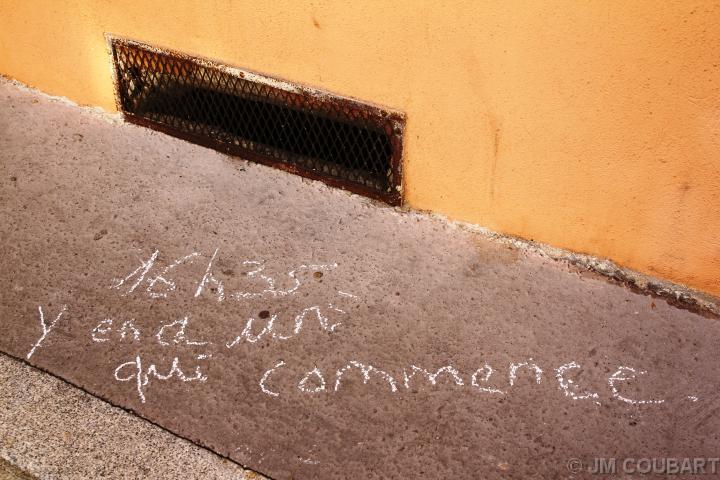 16h35
y en a un
qui commence.
© JM COUBART